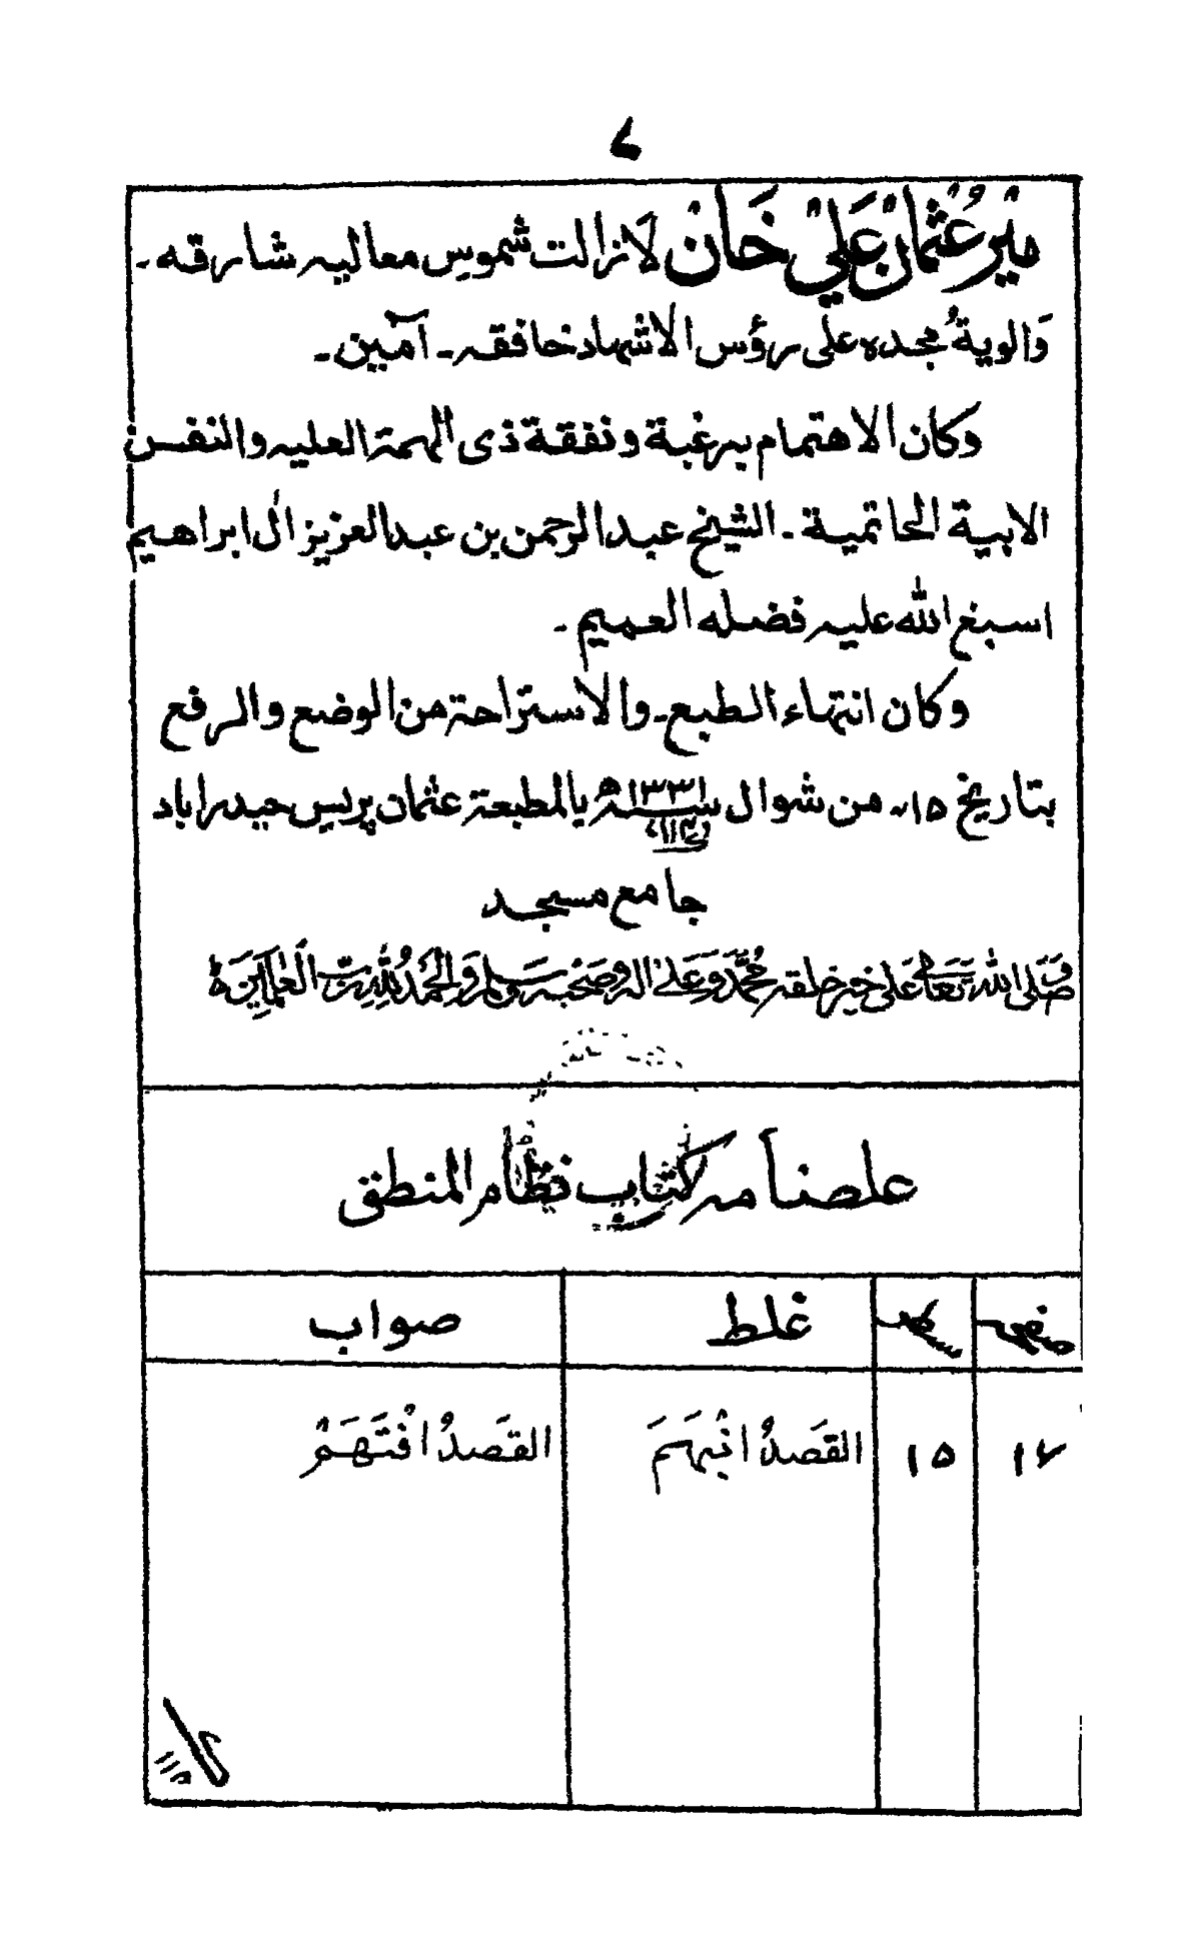 ۷
مِيْر عُثْمَانْ عَلِيْ خَانْ لَازالت شموس معاليه شارقه۔
وَالويةُ مجده على رؤس الاشهاد خافقه۔ آمين۔
وكان الاهتمام برغبة ونفقة ذى الهمة العليه والنفس
الابية الحاتمية۔ الشيخ عبد الرحمن بن عبد العزيز ال ابراهيم
اسبغ الله عليه فضله العميم۔
وكان انتهاء الطبع۔ والاستراحة من الوضع والرفع
بتاريخ ۱۵۔ من شوال سنه ۱۳۳۱ھ بالمطبعة عثمان پريس حيدراباد
جامع مسجد
صَلى الله تعالى عَلى خير خلقه مُحَمَّد وَعَلى اله وصَحبه وَسلم وَالحَمدُ لله رَبّ العٰلمِين
غلطنامه كتاب نظام المنطق
صفحه سطر غلط صواب
۱۷ ۱۵ القَصدُ انْبَهَمَ القَصدُ افْتَهَمْ